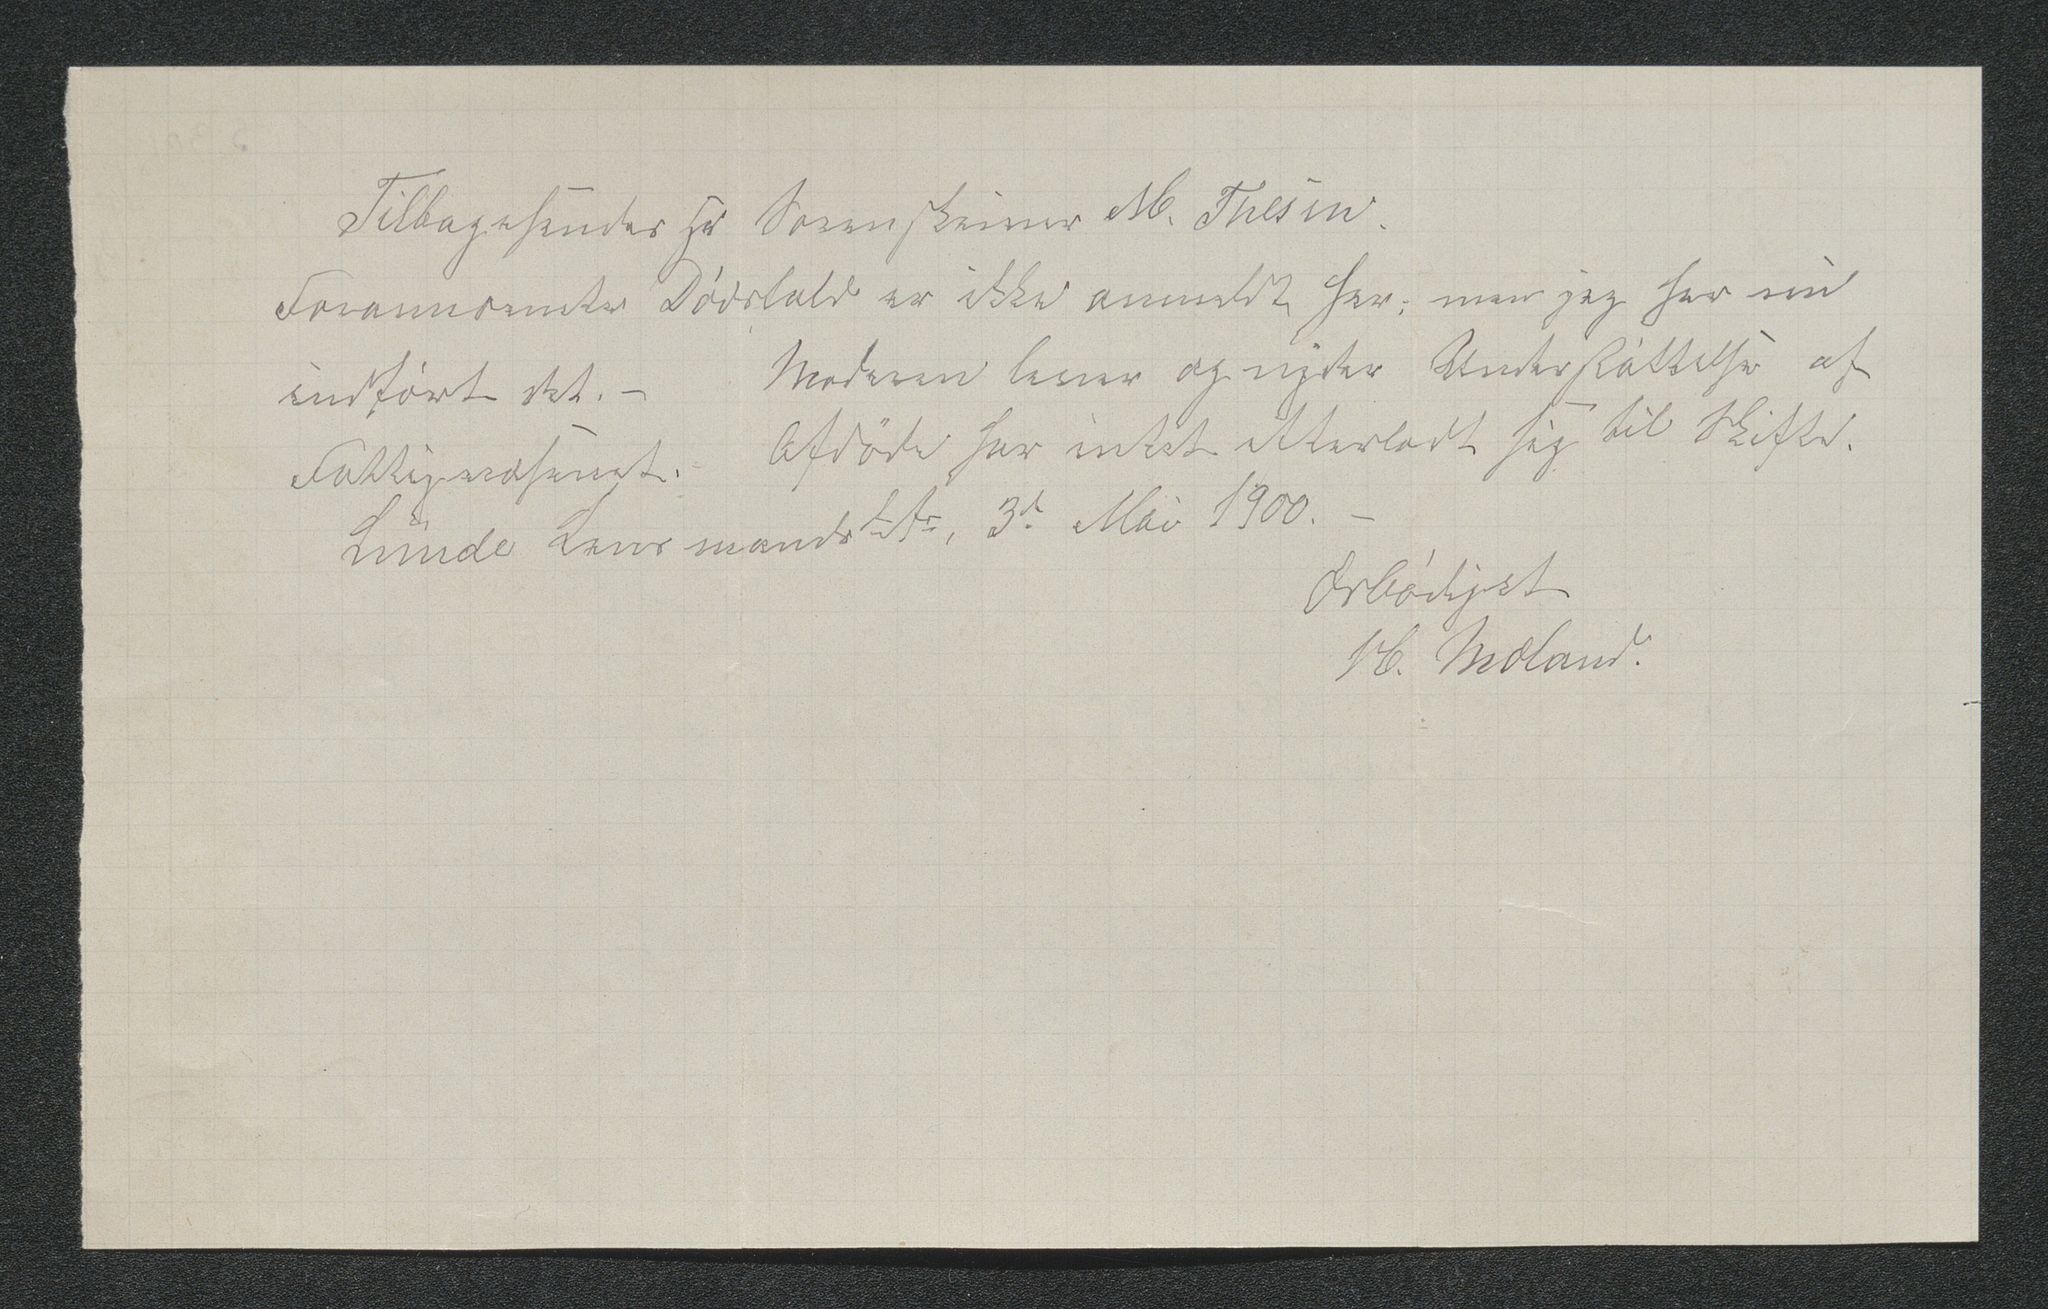 Tilbagesendes Hr Sorenskriver M. Thesen.
Forannævnte Dødsfald er ikke anmeldt her; men jeg har nu
indført det. –    Moderen lever og nyder Understøttelse af
Fattigvæsenet. –    Afdøde har intet efterladt sig til Skifte.
Lunde Lensmands, 3d Mai 1900. –
Ærbødigst
H. Moland.